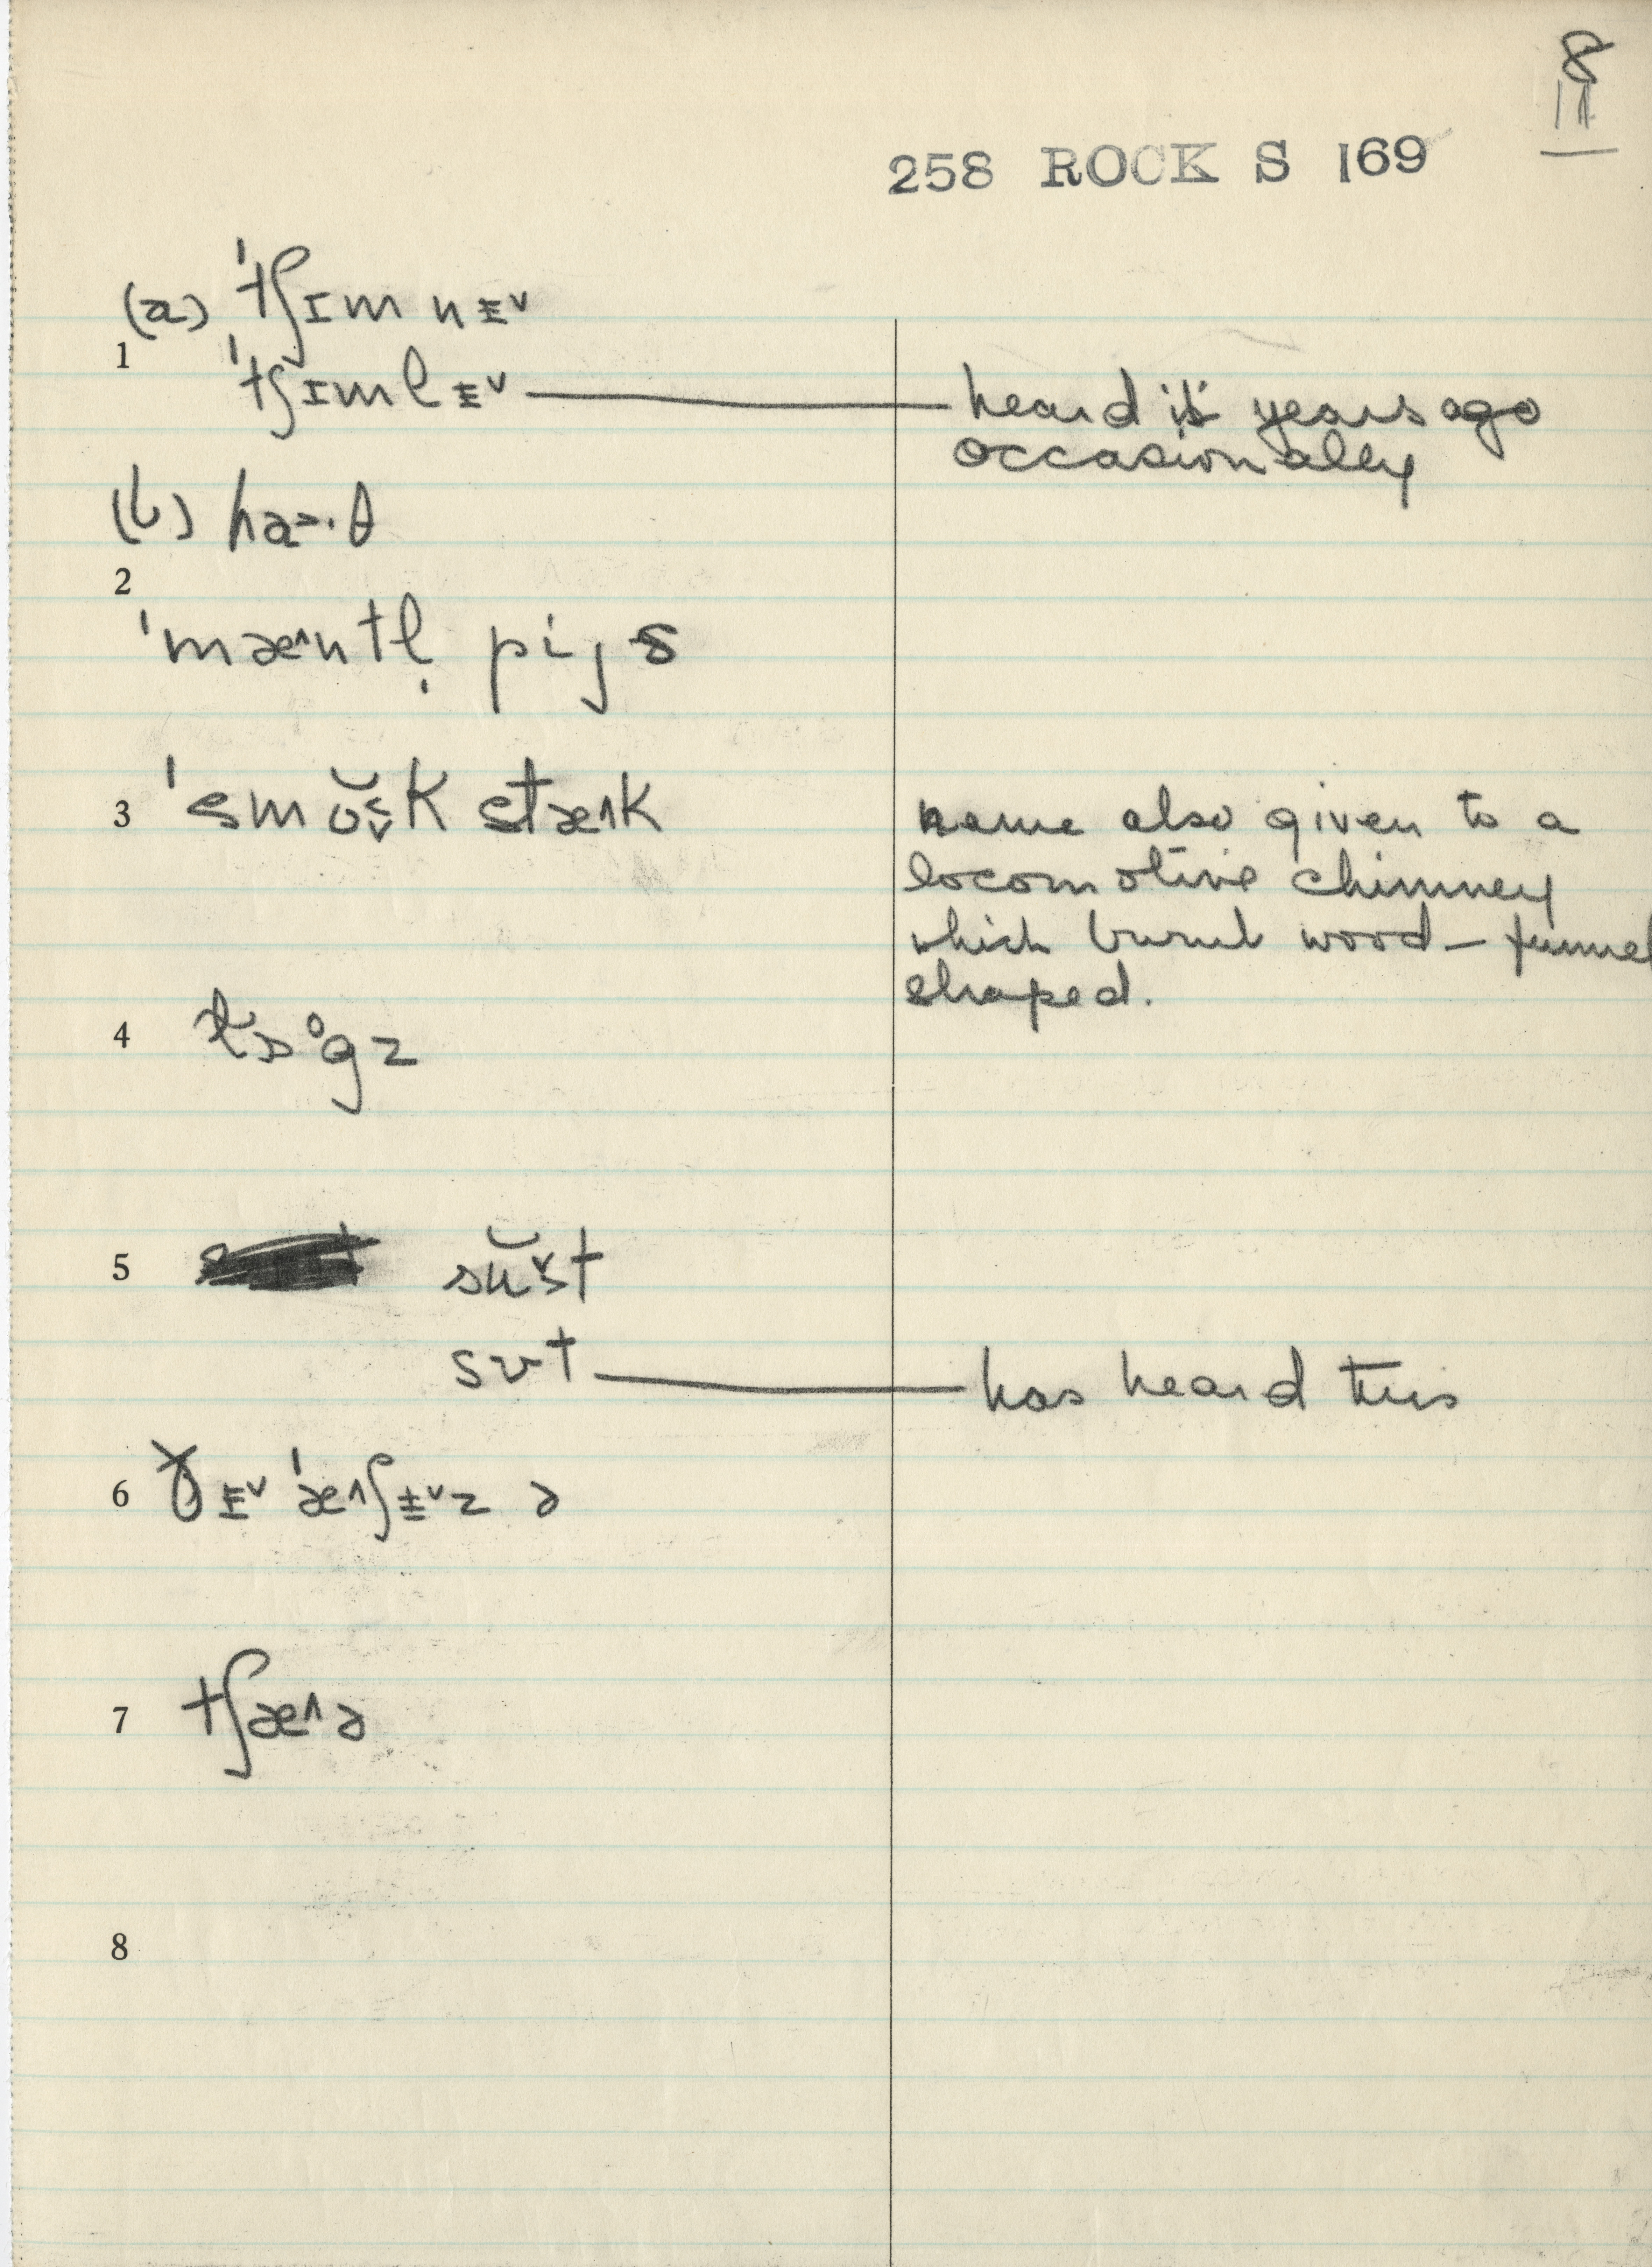 8
11
258 ROCK S 169
(a) ˈtʃɪm nɪ˅
1
ˈtʃɪmlɪ˅ — heard it years ago
occasionally
(b) ha>·θ
2
ˈmæ^ntl̩ pijs
3 ˈsmŏsk stæ^k name also given to a
locomotive chimney
which burnt wood – funnel
shaped.
4 lɒ°gz
5 sŭ˅st
sʊt — has heard this
6 ðɪ˅ ˈæ^ʃɪ˅z ə
7 tʃæ^ə
8